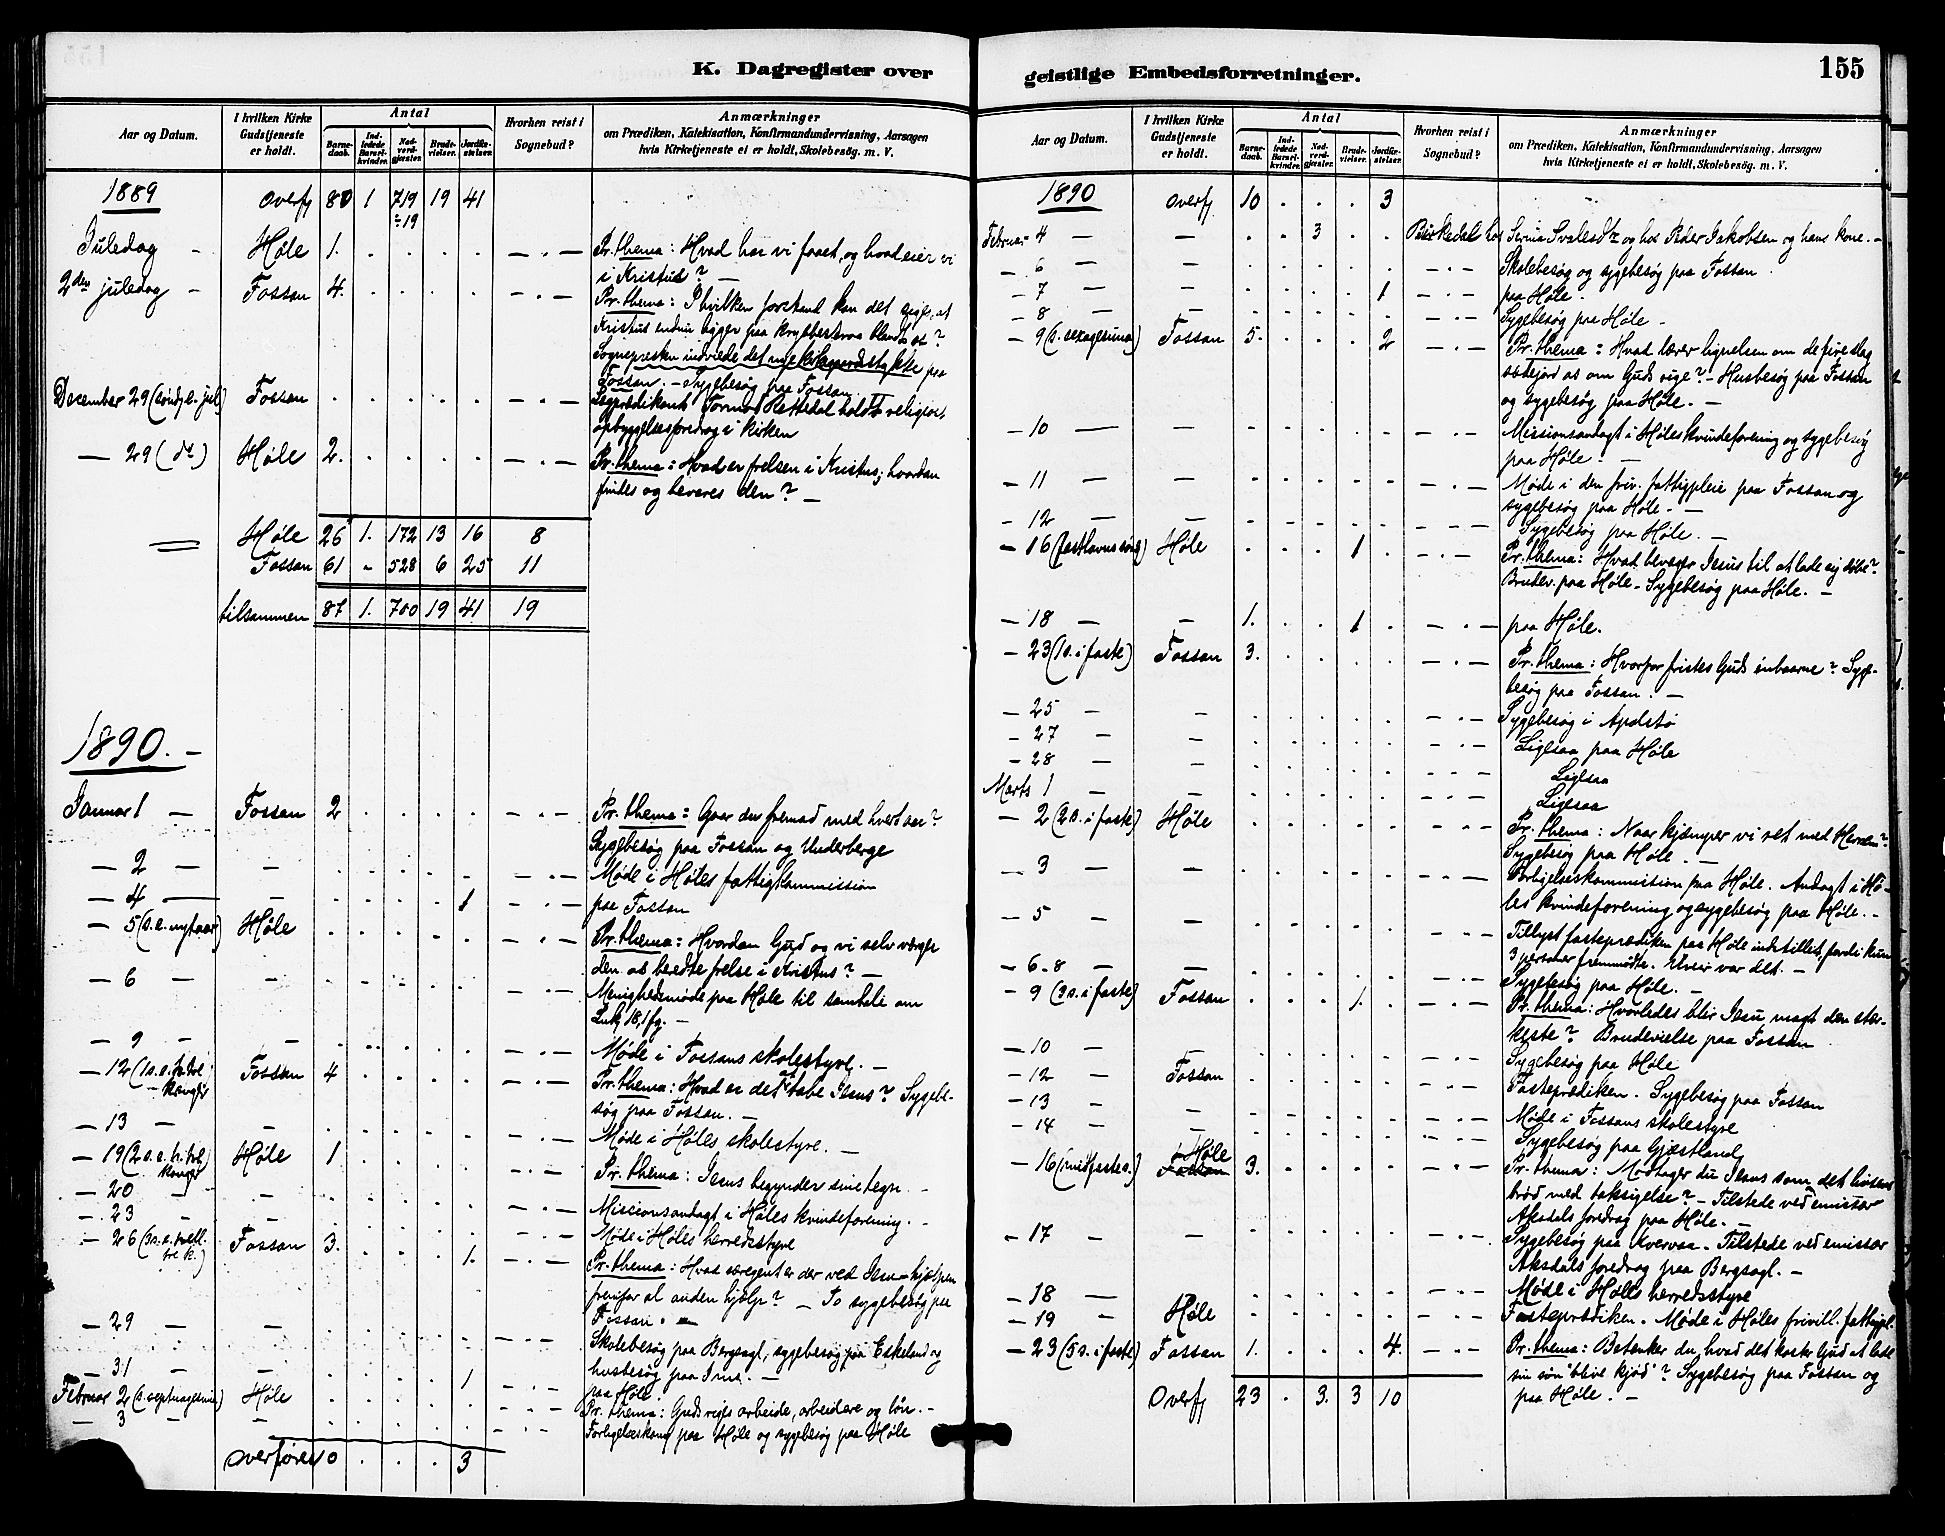 K. Dagregister over
Aar og Datum.
I hvilken Kirke Gudstjeneste er holdt.
Antal
Barnedaab.
Indledede Barselkvinder.
Nadverdgjæster.
Brudevielser.
Jordfæstelser.
Hvorhen reist i Sognebud?
Anmærkninger
om Prædiken, Katekisation, Konfirmandundervisning, Aarsagen
hvis Kirketjeneste ei er holdt, Skolebesög. m. V.
1889 overf 80 1 719 19 41
÷19
Juledag - Høle 1. . . . . - . - Pr. thema: Hvad har vi faaet, og hvad eier vi
i Kristus? -
2den juledag - Fossan 4. . . . . - . - Pr. thema: I hvilken forstand kan det siges, at
Kristus endnu ligger paa krybbestraa blandt os?
Sognepresten indviede det nye kirkegaardsstykke paa
Fossan. - Sygebesøg paa Fossan
December 29 (sønd. e. jul) Fossan . . . . . Lægprædikant Tormod Rettedal holdt religiøst
opbyggelsesforedrag i kirken
- 29 (do) Høle 2. . . . . - . - Pr. thema: Hvad er frelsen i Kristus, hvordan
findes og bevares den? -
Høle 26 1. 172 13 16 8
Fossan 61 - 528 6 25 11
tilsammen 87 1. 700 19 41 19
1890. -
Januar 1 - Fossan 2 . . . . - . - Pr. thema: Gaar du fremad med hvert aar?
Sygebesøg paa Fossan og Underberge
- 2 - - . . . . . - . - Møde i Høles fattigkommission
- 4 - - . . . . 1 - . - paa Fossan
- 5 (s. e. nytaar) Høle . . . . . - . - Pr. thema: Hvordan Gud og vi selv værge
den os beredte frelse i Kristus? -
- 6 - . . . . . - . - Menighedsmøde paa Høle til samtale om
Luk. 18,1 fg. -
- 9 - - . . . . . - . - Møde i Fossans skolestyre. -
- 12 (1 s. e. h. tre konger) Fossan 4 . . . . - . - Pr. thema: Hvad er det at tabe Jesus? Sygebe-
søg paa Fossan. -
- 13 - - . . . . . - . - Møde i Høles skolestyre. -
- 19 (2 s. e. h. tre konger) Høle 1 . . . . - . - Pr. thema: Jesus begynder sine tegn. -
- 20 - . . . . . Missionsandagt i Høles kvindeforening. -
- 23 - - . . . . . - . - Møde i Høles herredsstyre
- 26 (3 s. e. hell. tre k.) Fossan 3. . . . 1. - . - Pr. thema: Hvad særegent er der ved Jesu hjælpen
fremfor al anden hjælp? - To sygebesøg paa
Fossan. -
- 29 - - . . . . . - . - Skolebesøg paa Bergsagl, sygebesøg paa Eskeland og
husbesøg paa Ims. -
- 31 - . . . . 1 - . - paa Høle.
Februar 2 (s. septuagesima) Høle . . . . . - . - Pr. thema: Guds riges arbeide, arbeidere og løn. -
- 3 - . . . . . - . - Forligelseskom. paa Høle og sygebesøg paa Høle
overføres 10 . . . 3
geistlige Embedsforretninger.
155
Aar og Datum.
I hvilken Kirke Gudstjeneste er holdt.
Antal
Barnedaab.
Indledede Barselkvinder.
Nadverdgjæster.
Brudevielser.
Jordfæstelser.
Hvorhen reist i Sognebud?
Anmærkninger
om Prædiken, Katekisation, Konfirmandundervisning, Aarsagen
hvis Kirketjeneste ei er holdt, Skolebesög. m. V.
1890 overf 10 . . . 3
Februar 4 - - . . 3 . . Birkedal hos Serina Svalesdtr og hos Peder Jakobsen og hans kone. -
- 6 - - . . . . . - . - Skolebesøg og sygebesøg paa Fossan.
- 7 - - . . . . 1 - . - paa Høle.
- 8 - - . . . . . - . - Sygebesøg paa Høle -
- 9 (s. sexagesima) Fossan 5. . . . 2 - . - Pr. thema: Hvad lærer lignelsen om de fire slag
sædejord os om Guds rige? - Husbesøg paa Fossan
og sygebesøg paa Høle. -
- 10 - - . . . . . - . - Missionsandagt i Høles kvindeforening og sygebesøg
paa Høle. -
- 11 - - . . . . . - . - Møde i den friv. fattigpleie paa Fossan og
sygebesøg paa Høle. -
- 12 - - . . . . . - . - Sygebesøg paa Høle. -
- 16 (fastelavns sønd) Høle . . . 1 . - . - Pr. thema: Hvad bevæger Jesus til at lade sig døbe?
Brudev. paa Høle - Sygebesøg paa Høle. -
- 18 - 1. . . 1 . - . - paa Høle.
- 23 (1 s. i faste) Fossan 3. . . . . - . - Pr. thema: Hvorfor fristes Guds enbaarne? Syge-
besøg paa Fossan. -
- 25 - - . . . . . - . - Sygebesøg i Apalstø
- 27 - - . . . . . - . - Ligesaa paa Høle
- 28 - - . . . . . - . - Ligesaa
Marts 1 - - . . . . . - . - Ligesaa
- 2 (2 s. i faste) Høle . . . . . - . - Pr. thema: Naar kjæmper vi ret med Herren?
Sygebesøg paa Høle. -
- 3 - - . . . . . - . - Forligelseskommission paa Høle. Andagt i Hø-
les kvindeforening og sygebesøg paa Høle. -
- 5 - - . . . . . - . - Tillyst fasteprædiken paa Høle indstillet, fordi kun
3 personer fremmødte. Uveir var det. -
- 6-8 - - . . . . . - . - Sygebesøg paa Høle. -
- 9 (3 s. i faste) Fossan . . . 1. . - . - Pr. thema: Hvorledes blir Jesu magt den stær-
keste? Brudevielse paa Fossan
- 10 - . . . . . - . - Sygebesøg paa Høle
- 12 - Fossan . . . . . - . - Fasteprædiken. Sygebesøg paa Fossan
- 13 - - . . . . . - . - Møde i Fossans skolestyre
- 14 - - . . . . . - . - Sygebesøg paa Gjæstland
- 16 (midfastes.) Høle Fossan 3. . . . . - . - Pr. thema: Modtager du Jesus som det livsens
brød med taksigelse? - Tilstede ved emissær
Aksdals foredrag paa Høle. -
- 17 - - . . . . . - . - Sygebesøg paa Kvervaa. Tilstede ved emissær
Aksdals foredrag paa Bergsagl. -
- 18 - . . . . . Møde i Høles herredsstyre
- 19 - Høle . . . . . Fasteprædiken. Møde i Høles frivill. fattigpl.
- 23 (5 s. i faste) Fossan 1. . . . 4. - . - Pr. thema: Betænker du, hvad det koster Gud at lade
sin søn "blive kjød"? Sygebesøg paa Fossan og
paa Høle. -
Overf 23 . 3. 3 10